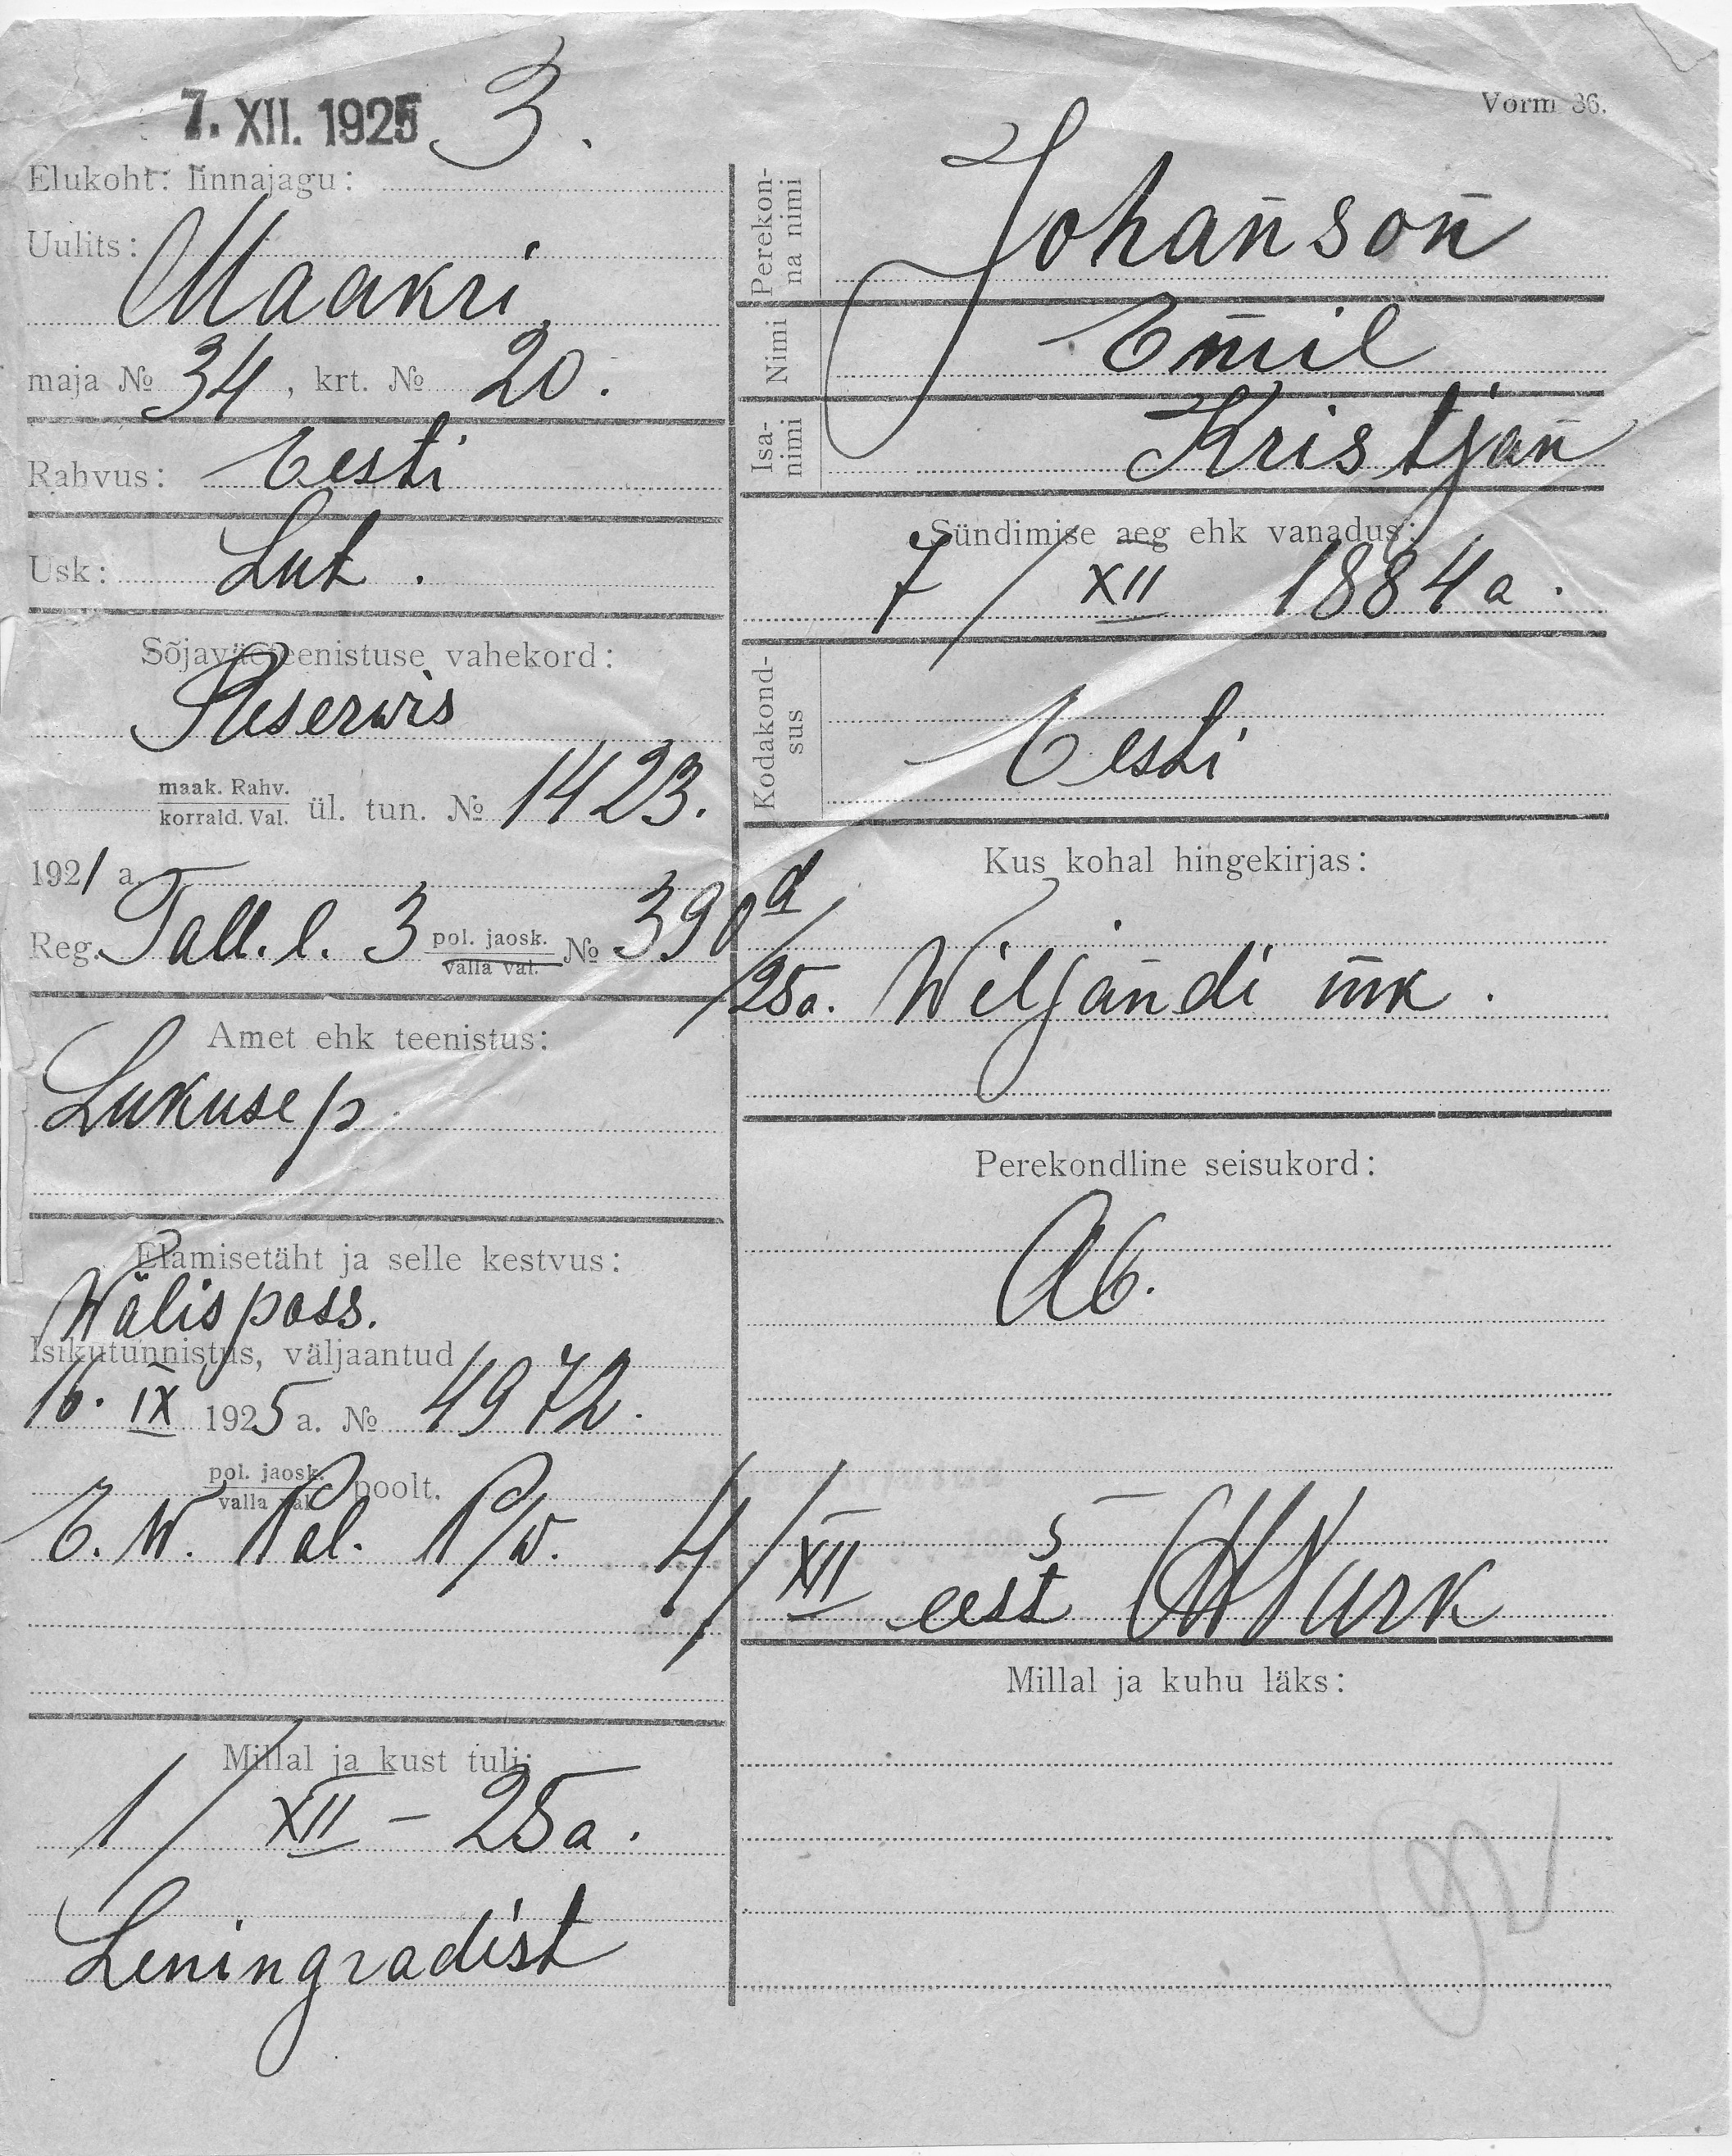 7. XII. 1925 3.
Vorm 36.
Elukoht: linnajagu:
Uulits:
Maakri
maja № 34, krt. № 20.
Rahvus: Eesti
Usk: Lut.
Sõjaväeteenistuse vahekord:
Reservis
maak. Rahv.
korrald. Val. ül. tun. № 1423.
1921 a.
Reg. Tall. l. 3 pol. jaosk.
valla val. № 390 d
/25a.
Amet ehk teenistus:
Lukusep
Elamisetäht ja selle kestvus:
Wälispass.
Isikutunnistus, väljaantud
16. IX 1925 a. № 4972.
pol. jaosk.
valla val. poolt.
E. W. Pal. P/w.
Millal ja kust tuli:
1/XII - 25a.
Leningradist
Perekon-
na nimi
Johanson
Nimi
Emil
Isa-
nimi
Kristjan
Sündimise aeg ehk vanadus:
7/XII 1884 a.
Kodakond-
sus
Eesti
Kus kohal hingekirjas:
Wiljandi mk.
Perekondline seisukord:
Ab.
4/XII eest Nurk
Millal ja kuhu läks: